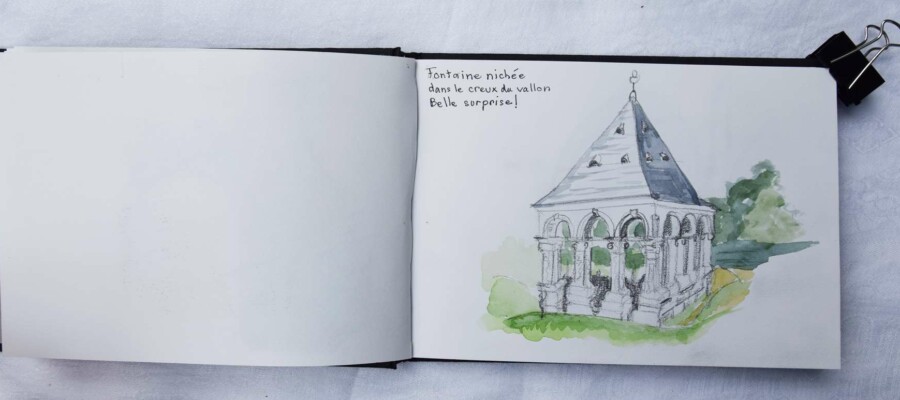 Fontaine nichée
dans le creux du vallon
Belle surprise!